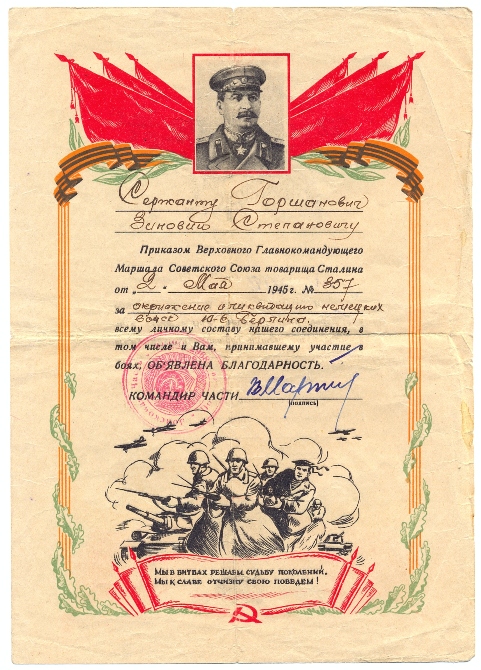 Сержанту Горшанович
Зиновию Степановичу
Приказом Верховного Главнокомандующего
Маршала Советского Союза товарища Сталина
от „2“ Май 1945 г. № 357
за окружение и ликвидацию немецких
войск ю-в. Берлина.
всему личному составу нашего соединения, в
том числе и Вам, принимавшему участие в
боях, ОБ'ЯВЛЕНА БЛАГОДАРНОСТЬ.
КОМАНДИР ЧАСТИ
(подпись)
МЫ В БИТВАХ РЕШАЕМ СУДЬБУ ПОКОЛЕНИЙ,
МЫ К СЛАВЕ ОТЧИЗНУ СВОЮ ПОВЕДЕМ!